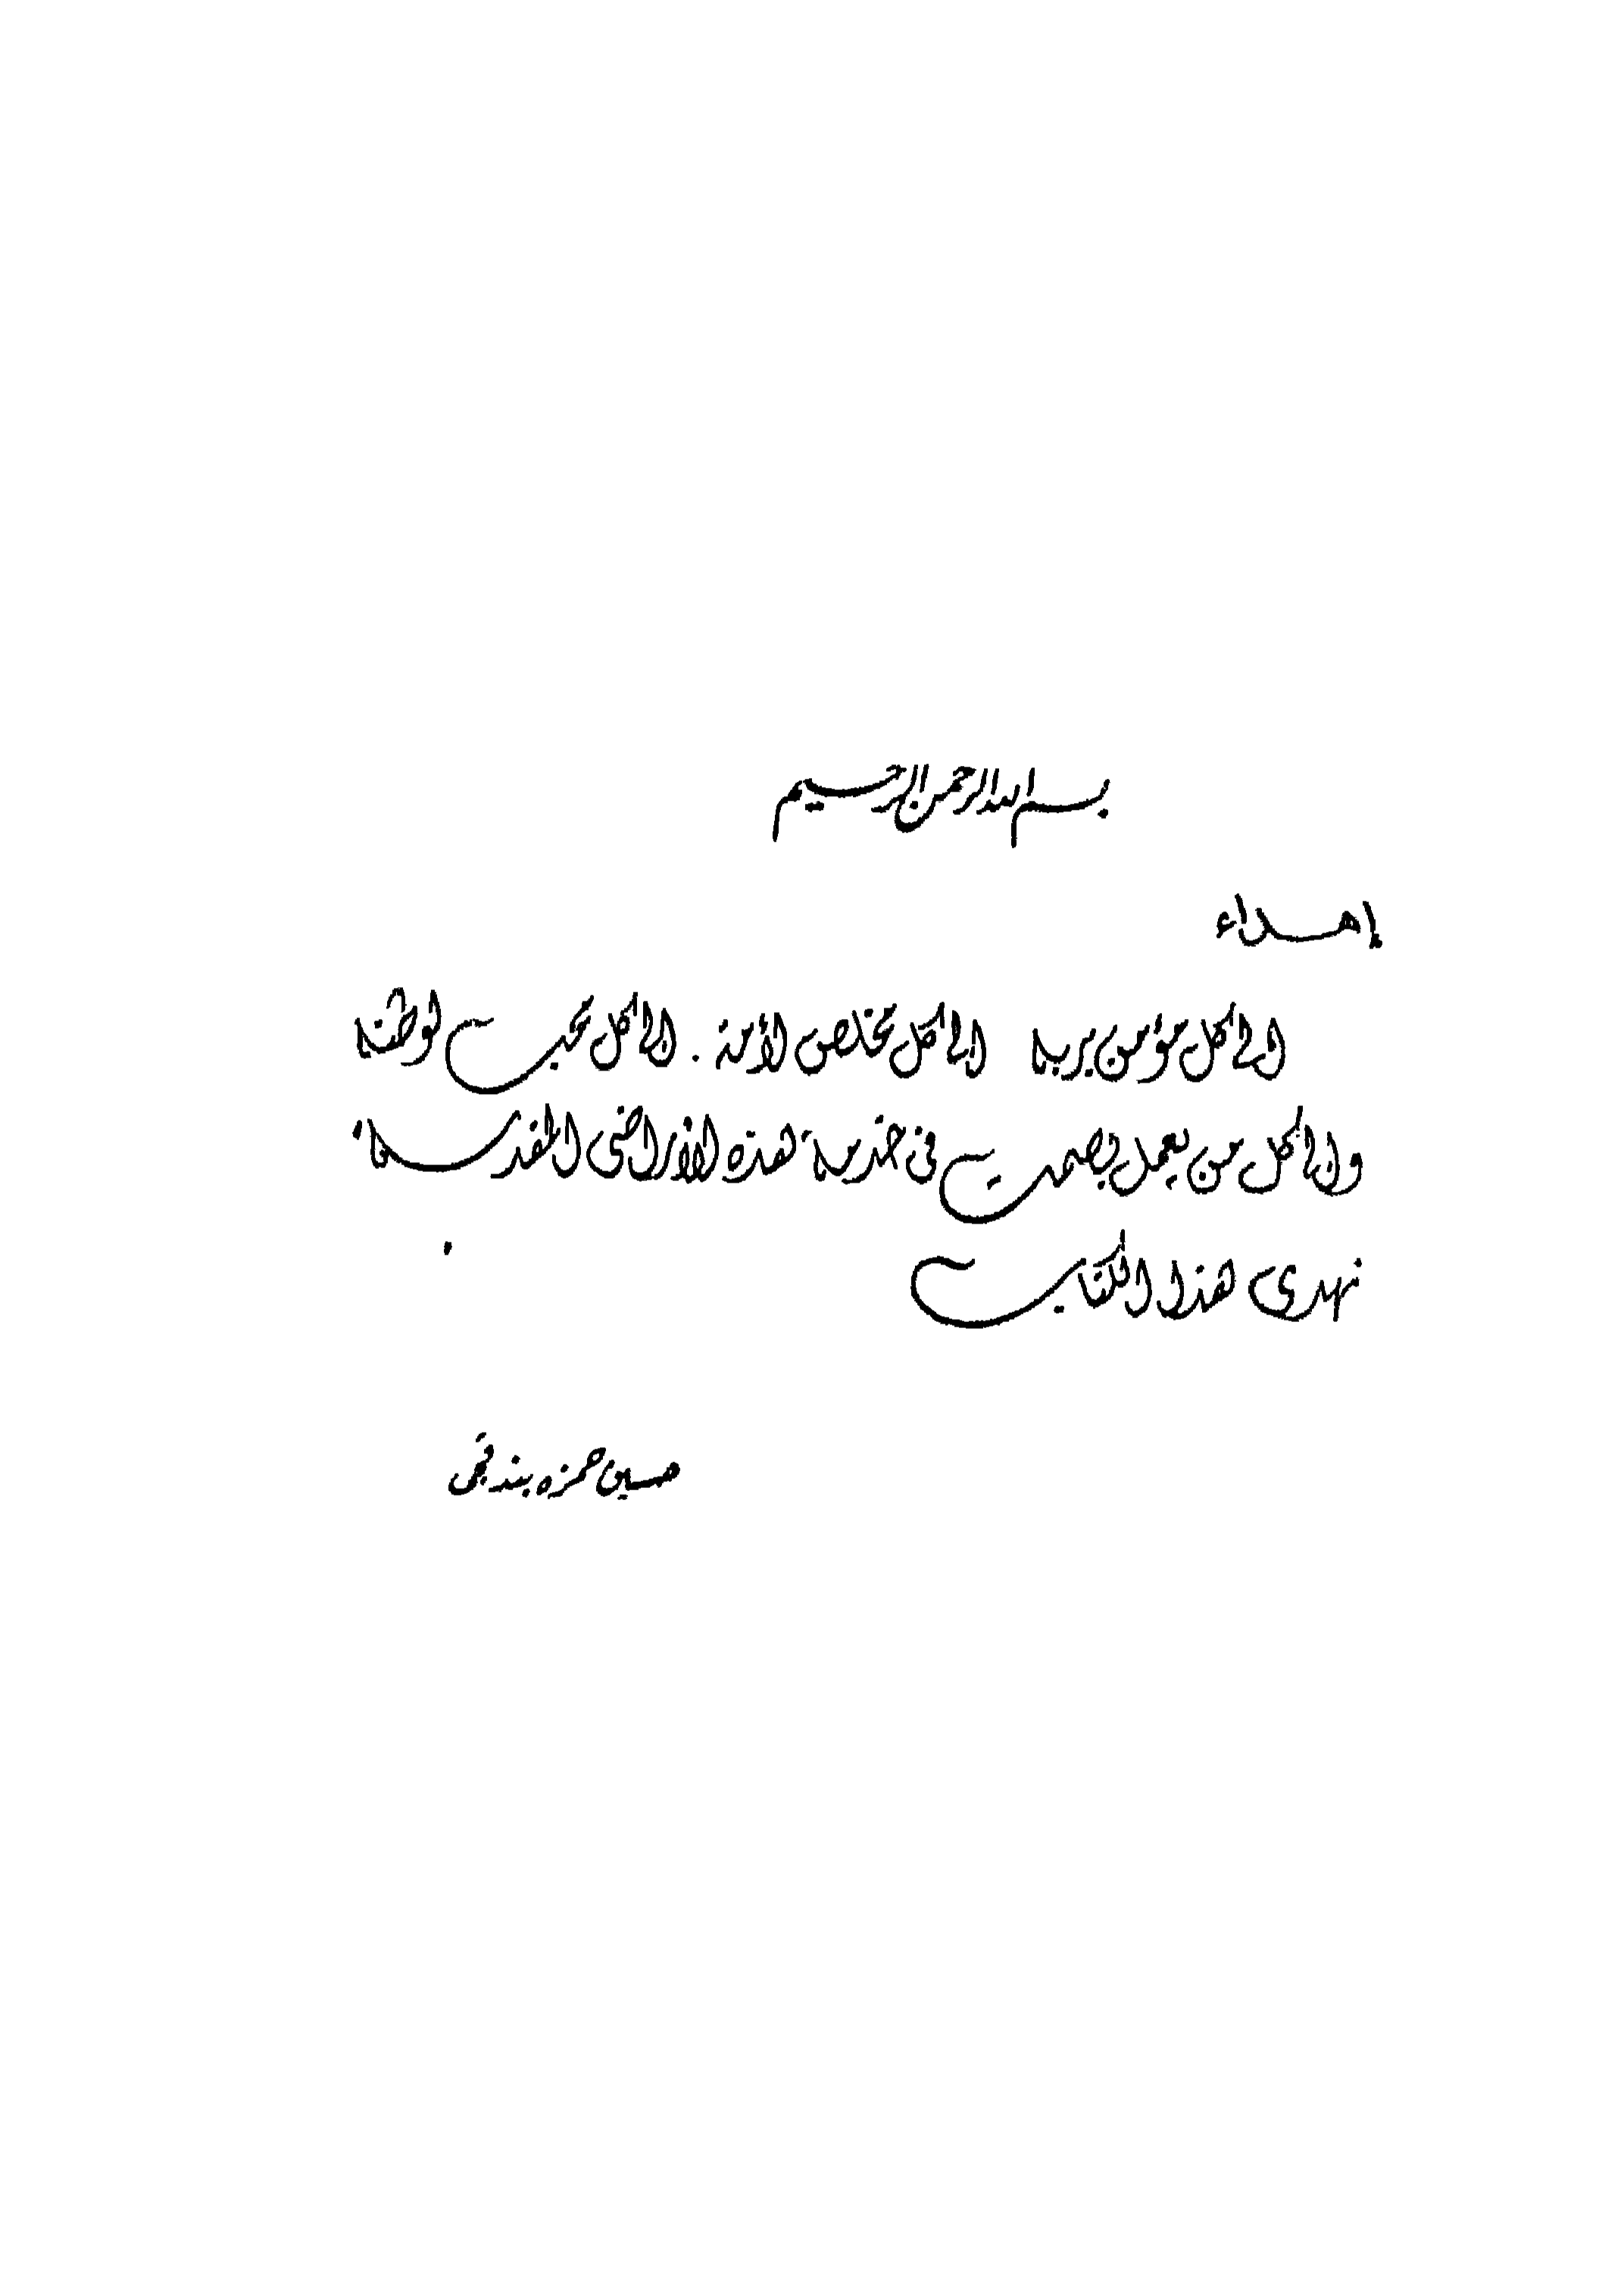 بسم الله الرحمن الرحيم
إهداء
الى كل مؤمن بربه الى كل مخلص لأمته . الى كل محب لوطنه
والى كل من يعمل بصمت فى خدمة هذه الأراضى المقدسة .
نهدى هذا الكتاب .
حسين حمزه بندقجى